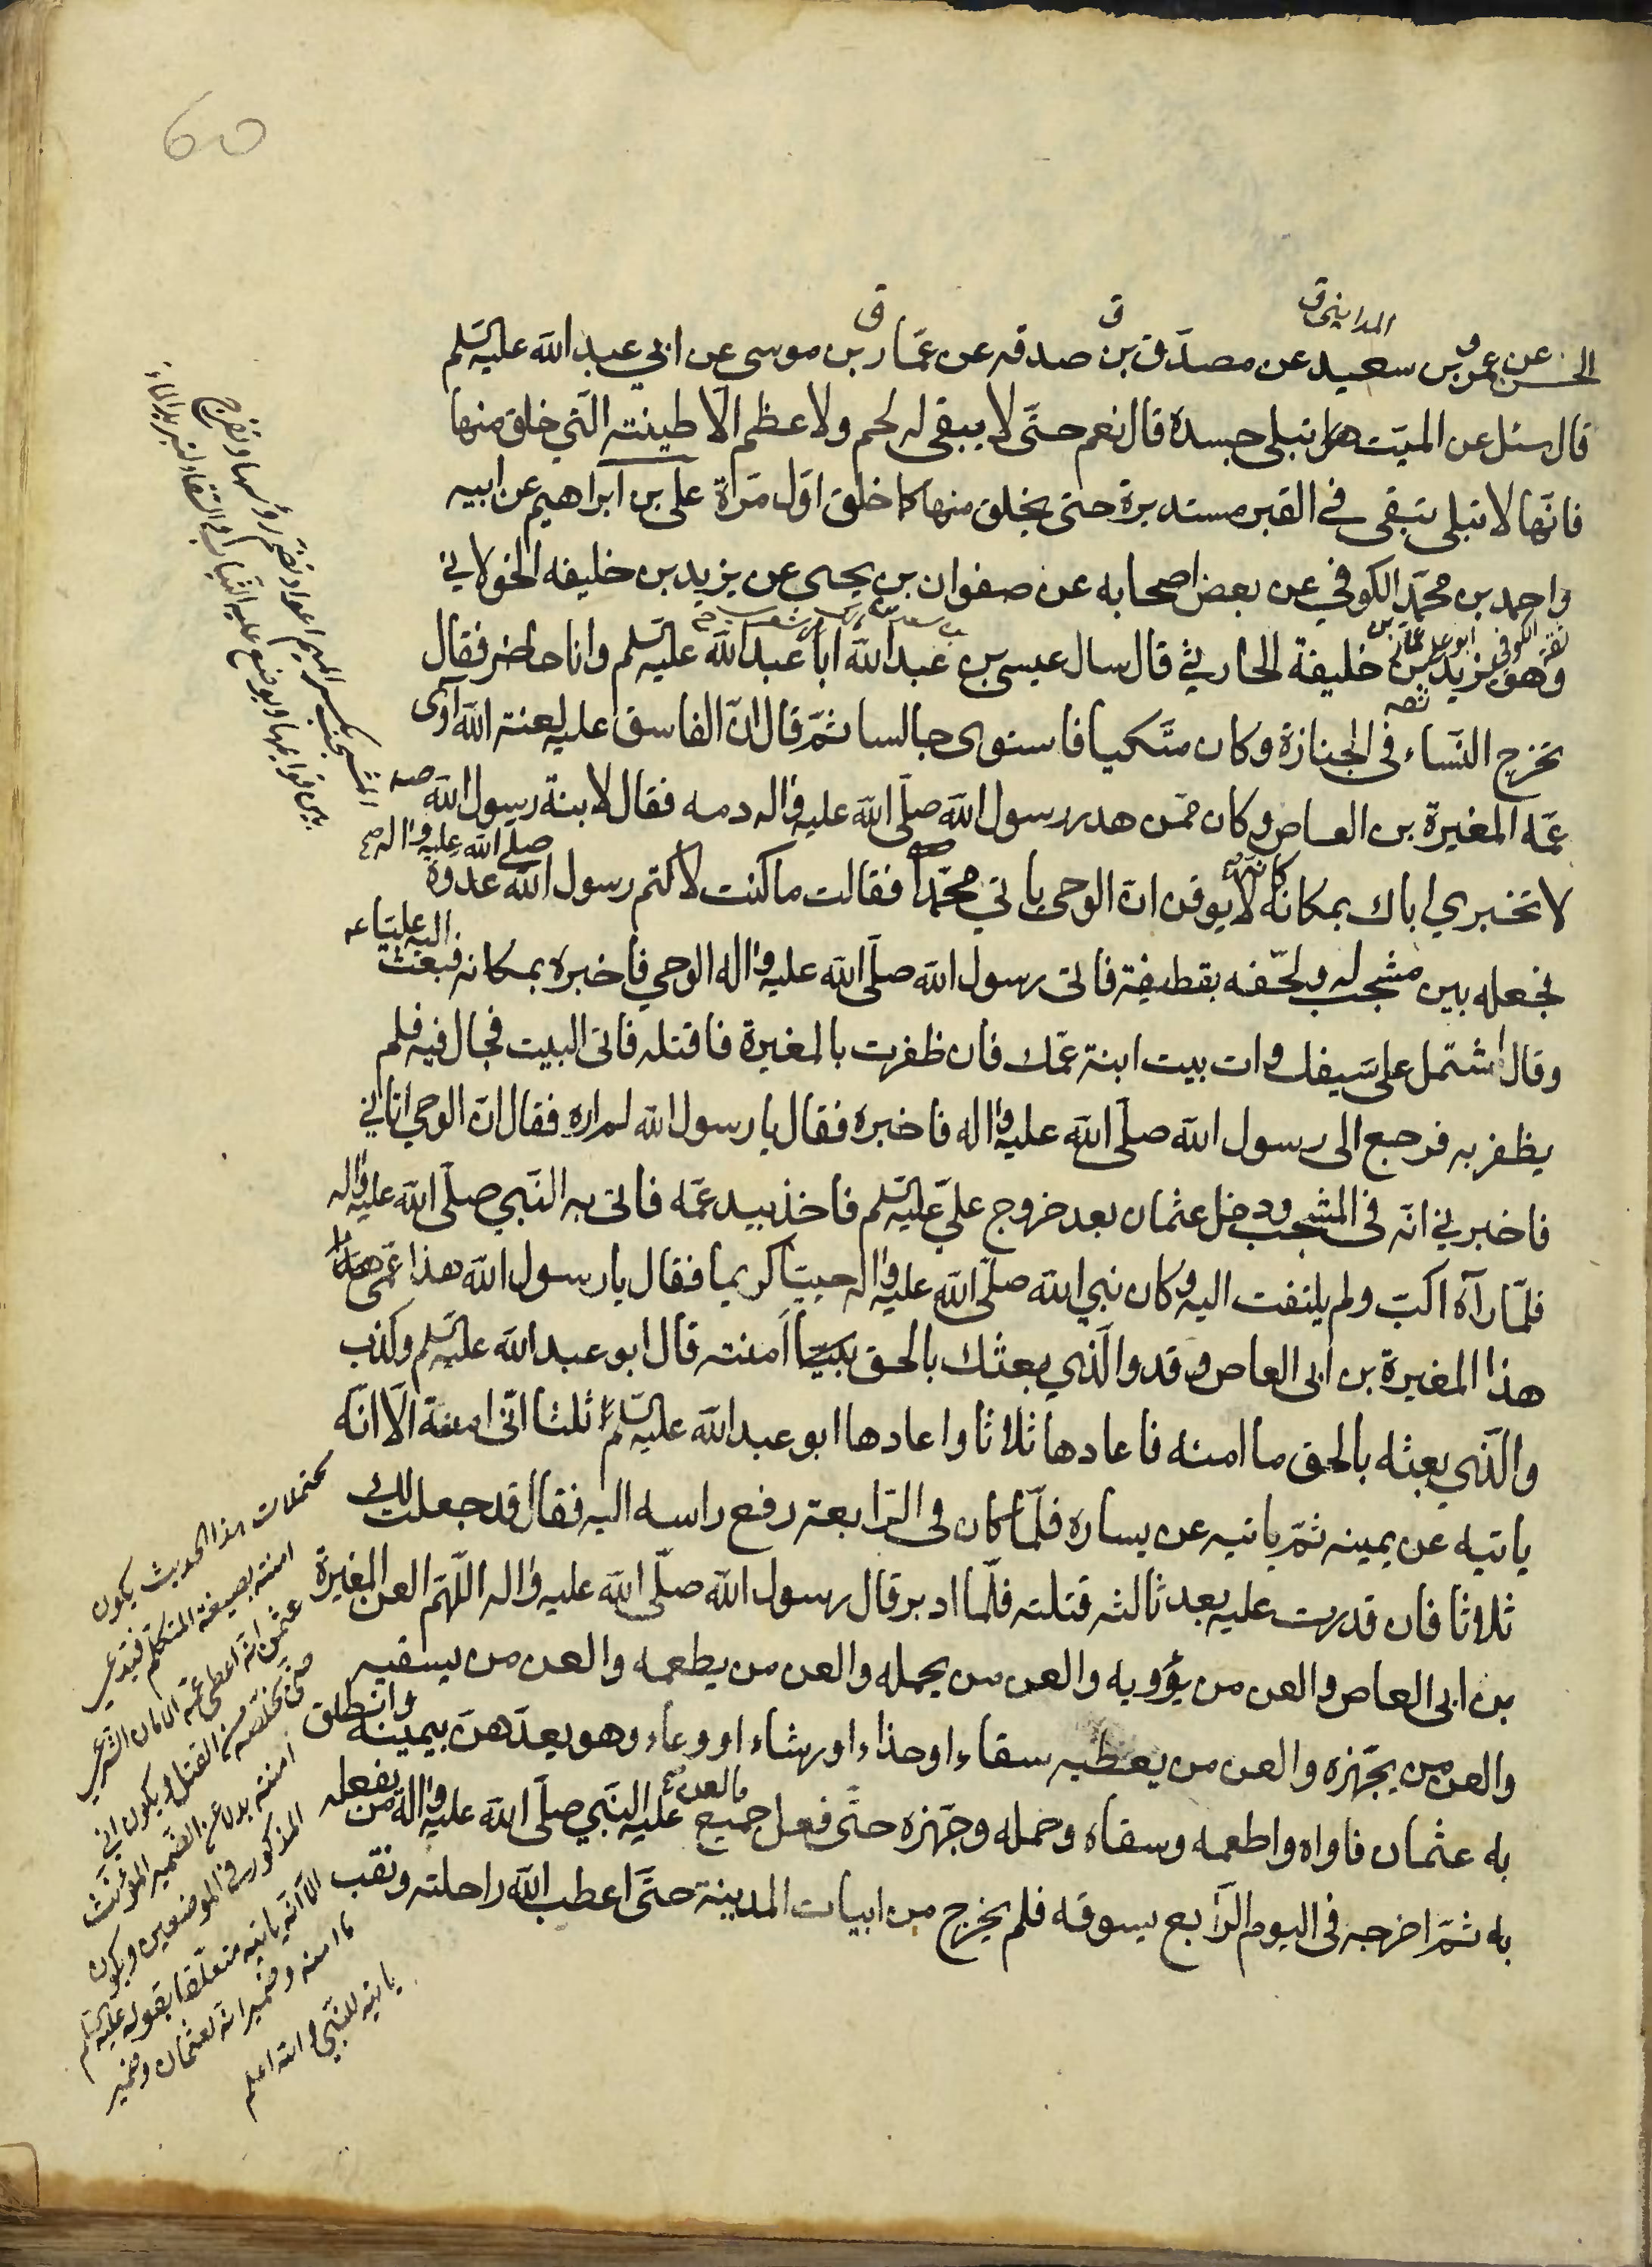 60
المدايني ق
ق
ق
الحسن عن عمرو بن سعيد عن مصدّق بن صدقه عن عمّار بن موسى عن ابي عبد الله عليه السّلم
قال سئل عن الميّت هل تبلى جسده قال نعم حتّى لا يبقى له لحم ولا عظم الّا طينته الّتي خلق منها
فانّها لا تبلى تبقى في القبر مستديرة حتى يخلق منها كما خلق اوّل مرّة على بن ابراهيم عن ابيه
واحمد بن محمّد الكوفي عن بعض اصحابه عن صفوان بن يحيى عن يزيد بن خليفه الخولاني
ثقة الكوفي ابو علي
وهو يزيد بن خليفة الحارثي قال سال عيسى بن عبد الله ابا عبد الله عليه السّلم وانا حاضر فقال
تخرج النّساء في الجنازة وكان متّكيا فاستوى جالسا ثمّ قال انّ الفاسق عليه لعنة الله آوى
عمّه المغيرة بن العاص وكان ممّن هدر رسول الله صلّى الله عليه واله دمه فقال لابنة رسول الله
صلى الله عليه واله
لا تخبري اباك بمكانه كانّه لا يوقن انّ الوحى ياتي محمّداً فقالت ما كنت لاكتم رسول الله عدوه
فجعله بين مشجب له ولحّفه بقطيفة فاتى رسول الله صلّى الله عليه واله الوحي فاخبره بمكانه فبعث
اليه عليّا ع
وقال اشتمل على سيفك وات بيت ابنة عمّك فان ظفرت بالمغيرة فاقتله فاتى البيت فجال فيه فلم
يظفر به فرجع الى رسول الله صلّى الله عليه واله فاخبره فقال يا رسول الله لم اره فقال انّ الوحي اتاني
فاخبرني انّه في المشجب ودخل عثمان بعد خروج عليّ عليه السّلم فاخذ بيد عمّه فاتى به النّبي صلّى الله عليه واله
فلمّا رآه اكبّ ولم يلتفت اليه وكان نبي الله صلّى الله عليه واله حييّا كريما فقال يا رسول الله هذا عمّي
هذا المغيرة بن ابى العاص وقد والّذي بعثك بالحق آمنته قال ابو عبد الله عليه السّلم وكذب
والّذي بعثه بالحق ما امنه فاعادها ثلاثا واعادها ابو عبد الله عليه السّلم ثلثا انّى امنه الّا انّه
ياتيه عن يمينه ثمّ ياتيه عن يساره فلمّا كان فى الرّابعة رفع راسه اليه فقال قد جعلت لك
ثلاثا فان قدرت عليه بعد ثالثه قتلته فلمّا ادبر قال رسول الله صلّى الله عليه واله اللّهمّ العن المغيرة
بن ابى العاص والعن من يؤويه والعن من يحمله والعن من يطعمه والعن من يسقيه
والعن من يجهّزه والعن من يعطيه سقاء او حذاء او رشاء او وعاء وهو يعدّهنّ بيمينه وانطلق
به عثمان فاواه واطعمه وسقاه وحمله وجهّزه حتّى فعل جميع ما لعن عليه النّبي صلّى الله عليه واله من يفعله
به ثمّ اخرجه فى اليوم الرّابع يسوقه فلم يخرج من ابيات المدينة حتّى اعطب الله راحلته ونقب
المشجب بكسر الميم اعواد تضم رؤسها وتفرج
بين قوائمها ويوضع عليه الثياب
محتملات هذا الحديث يكون
امنته بصيغة المتكلّم فيدعى
عثمان انه اعطى عمّه الامان
من القتل او يكون انّي
امنته بدلا عن الضمير المؤنّث
المذكور في الموضعين ويكون
الّا انّه ياتيه متعلّقا بقوله عليه السّلم
ما امنه وضمير انّه لعثمان وضمير
ياتيه للنّبي والله اعلم